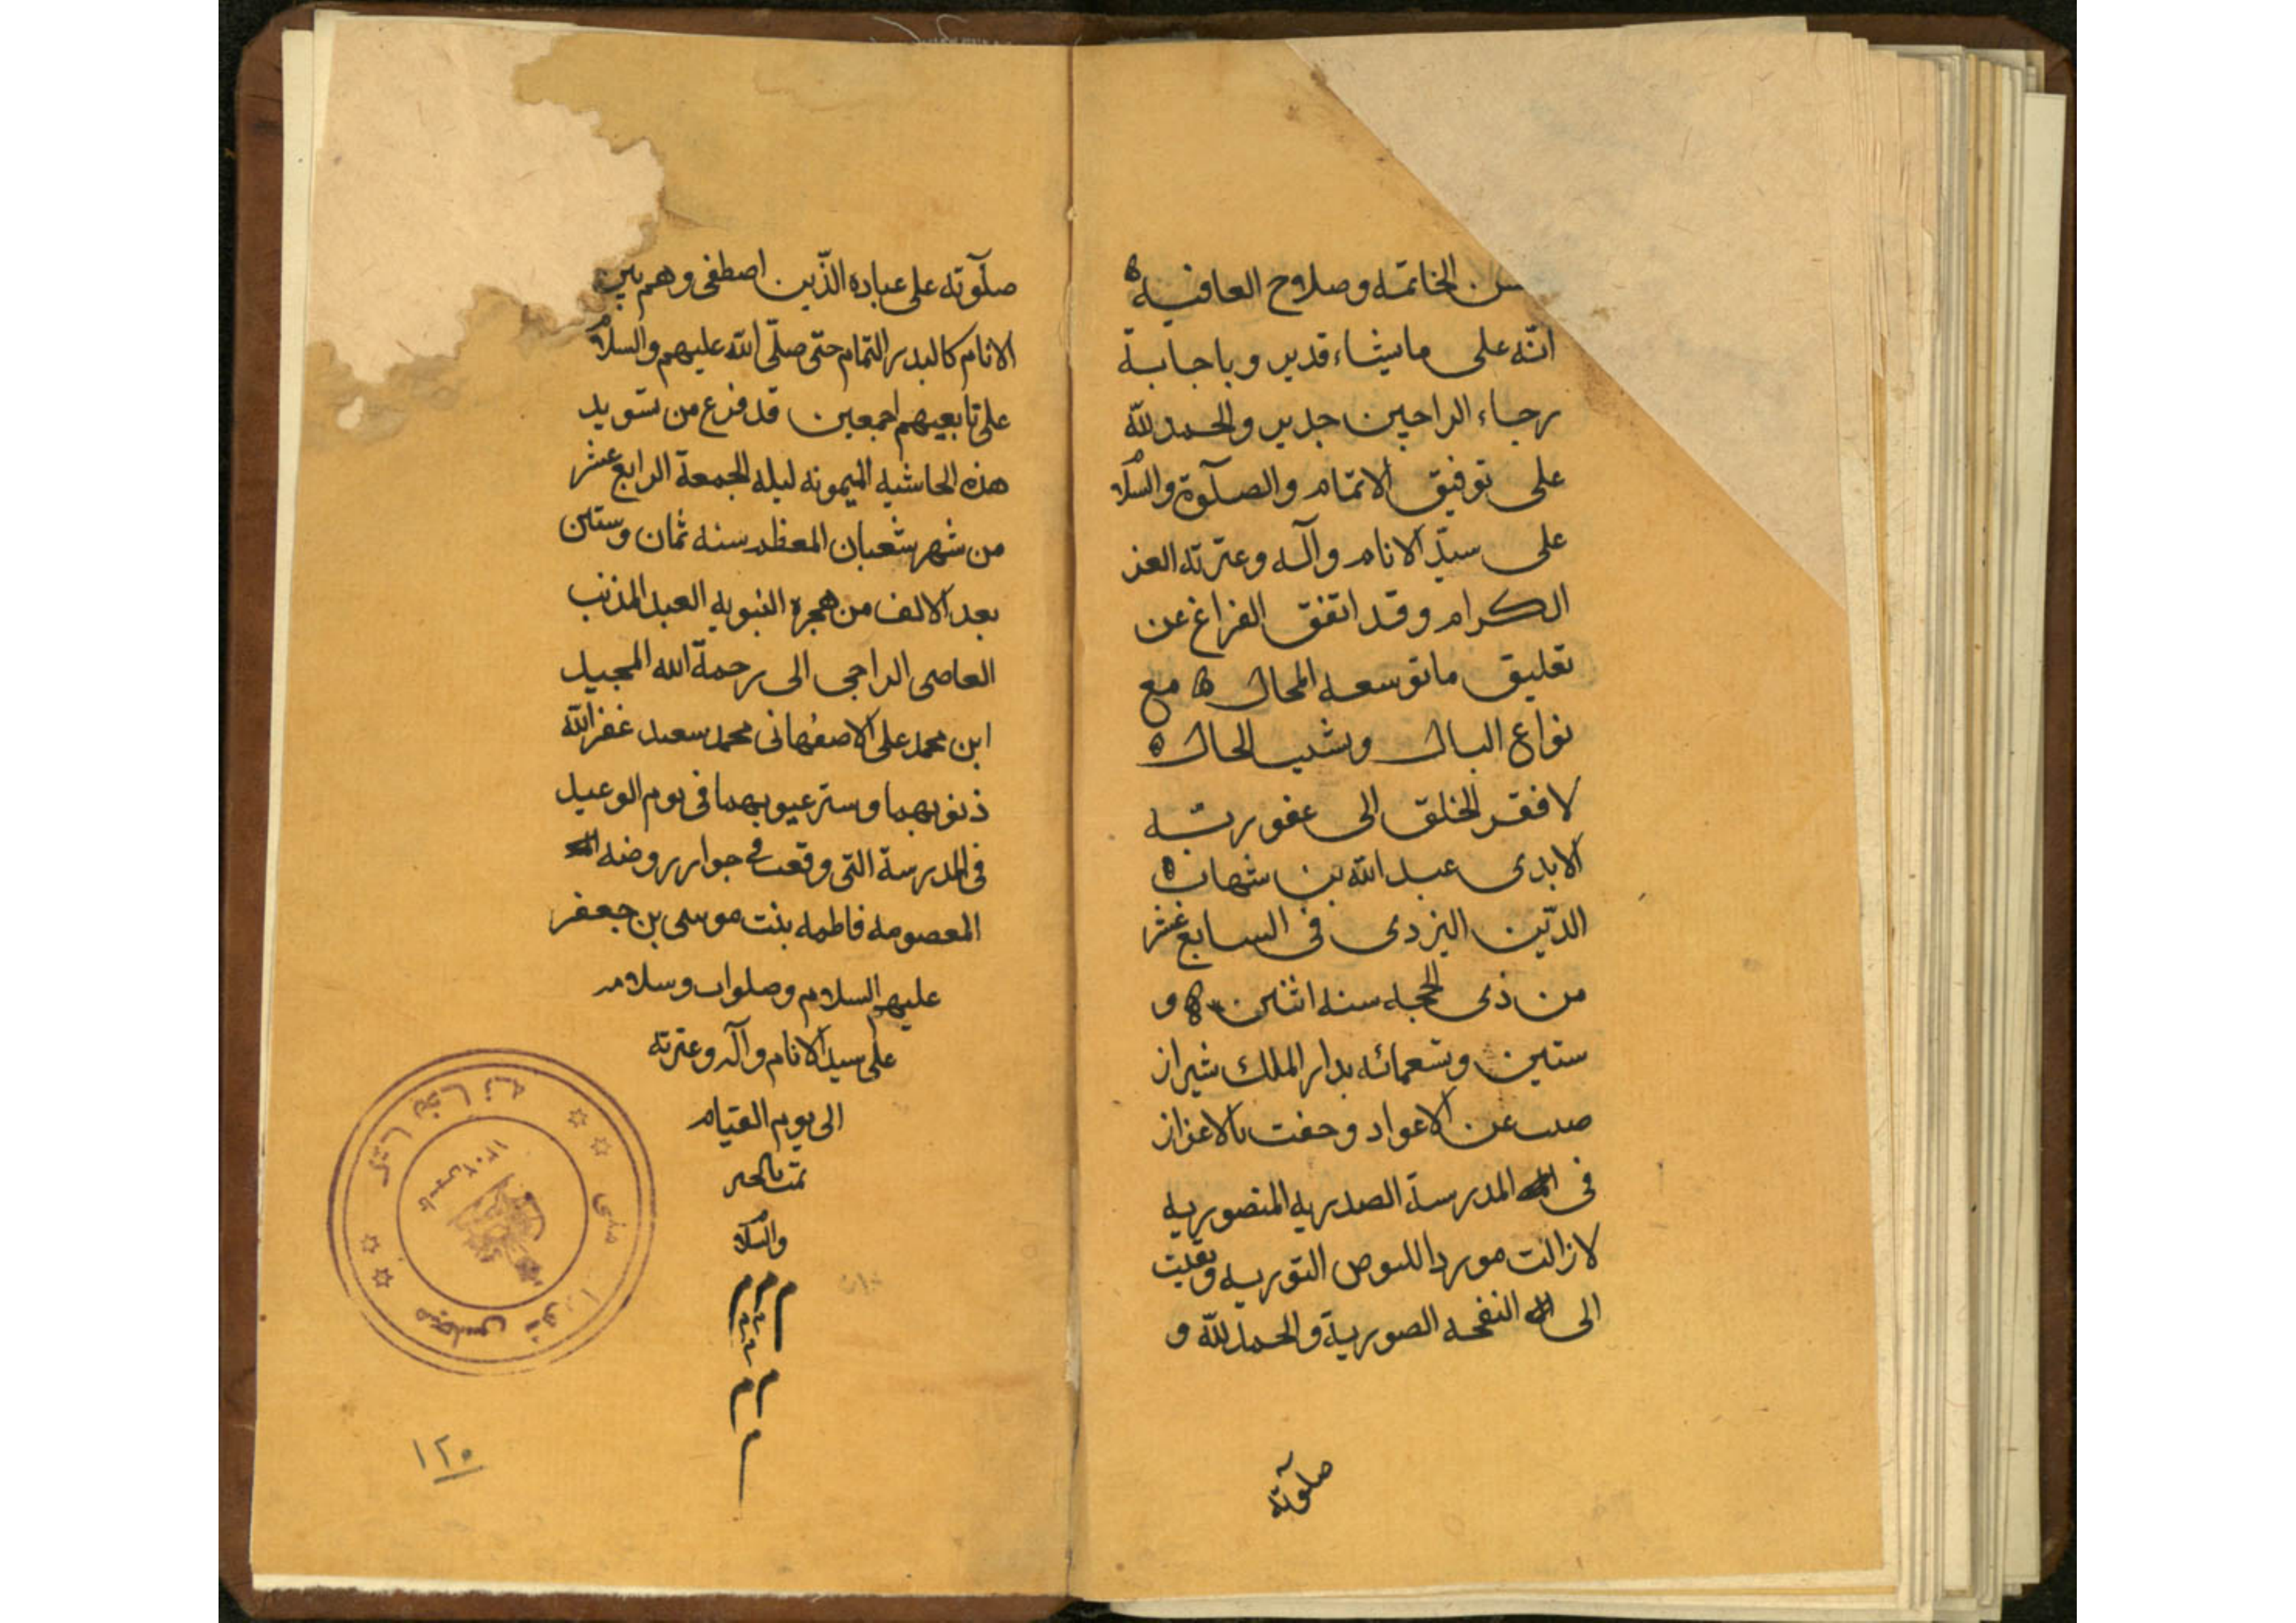 الخاتمه وصلاح العافية
انّه على ما يشاء قدير وباجابة
رجاء الراجين جدير والحمد لله
على توفيق الاتمام والصلوة والسلام
على سيّد الانام وآله وعترته الغر
الكرام وقد اتفق الفراغ عن
تعليق ما توسعه المجال مع
نواع البال وشيب الحال
لافقر الخلق الى عفو ربّه
الابدى عبد الله بن شهاب
الدّين اليزدى فى السابع عشر
من ذى الحجه سنه اثنين و
ستين وتسعمائه بدار الملك شيراز
عن الاعواد وحفت بالاعزاز
فى المدرسة الصدريه المنصوريه
لازالت موردا النوريه وبقيت
الى النفحه الصورية والحمد لله و
صلوته
صلوته على عباده الّذين اصطفى وهم بين
الانام كالبدر التمام حتى صلّى الله عليهم والسلام
على تابعيهم اجمعين قد فرغ من تسويد
هذه الحاشيه الميمونه ليله الجمعة الرابع عشر
من شهر شعبان المعظم سنه ثمان وستين
بعد الالف من هجرة النبويه العبد المذنب
العاصى الراجى الى رحمة الله المجيد
ابن محمد على الاصفهانى محمد سعيد غفر الله
ذنوبهما وستر عيوبهما فى يوم الوعيد
فى المدرسة التى وقعت فى جوار روضه
المعصومه فاطمه بنت موسى بن جعفر
عليهم السلام وصلوات وسلام
على سيد الانام وآله وعترته
الى يوم القيام
تمت بالخير
والسلام
م م م
م م
م
كتابخانه مجلس شوراى ملى
١٣٠٢
١٢٥